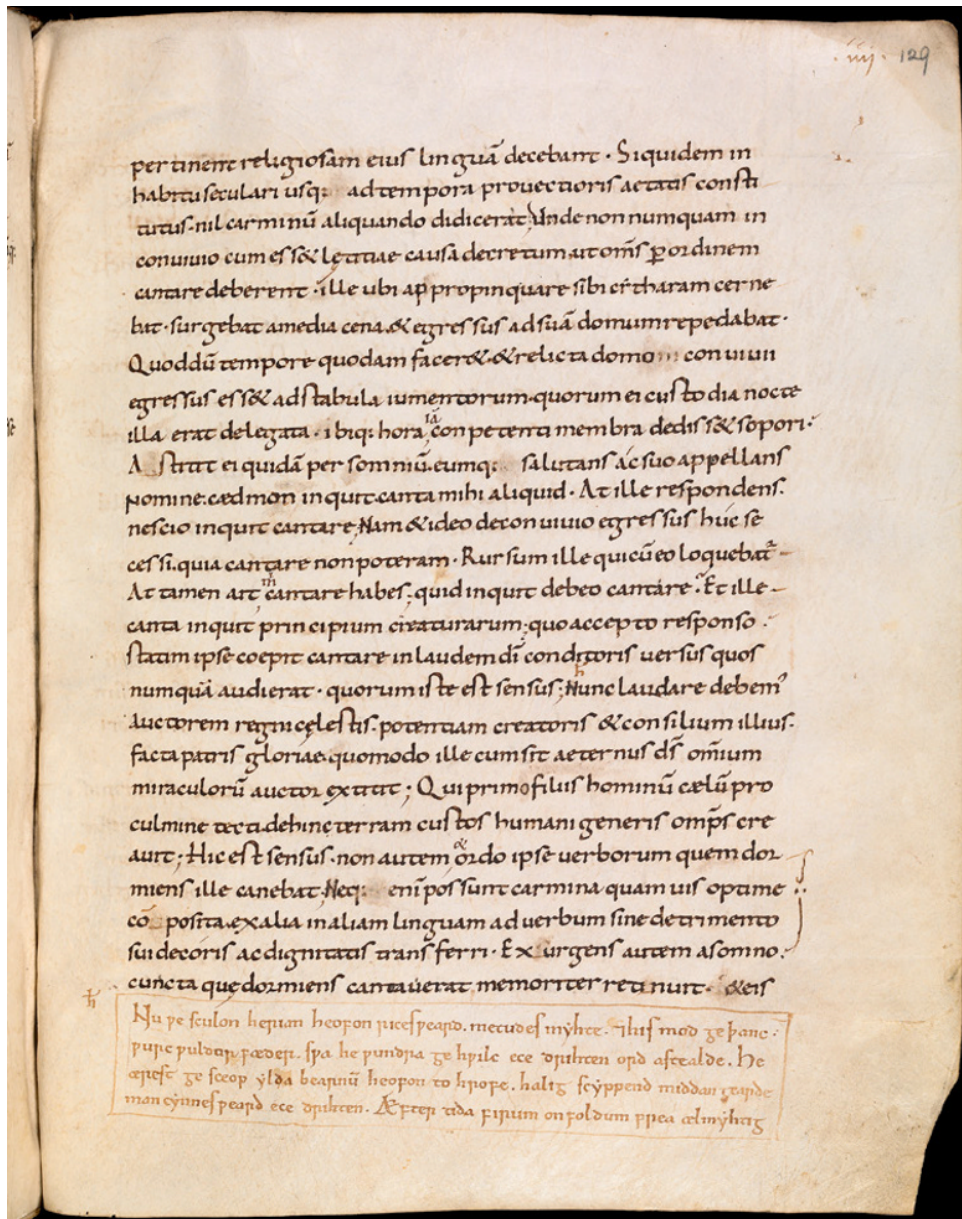 .iiij. 129
pertinent religiosam eius linguā decebant · Siquidem in
habitu seculari usq; ad tempora prouectioris aetatis consti
tutus · nil carminū aliquando didicerat; Unde non numquam in
conuiuio cum ess& lętitiae causa decretum ut om̄s ꝑ ordinem
cantare deberent · ille ubi appropinquare sibi citharam cerne
bat · surgebat a media cena & egressus ad suā domum repedabat ·
Quod dū tempore quodam facer& · & relicta domo conuiuii
egressus ess& ad stabula iumentorum · quorum ei custodia nocte
illa erat delegata · ibiq; hora iā conpetenti membra dediss& sopori ·
Astitit ei quidā per somniū · eumq; salutans ac suo appellans
nomine · cædmon inquit canta mihi aliquid · At ille respondens ·
nescio inquit cantare; Nam & ideo de conuiuio egressus huc se
cessi · quia cantare non poteram · Rursum ille qui cū eo loquebat᷑
At tamen ait m̄ cantare habes; quid inquit debeo cantare · Et ille
canta inquit principium creaturarum; quo accepto responso ·
statim ipse coepit cantare in laudem dī conditoris uersus quos
numquā audierat · quorum iste est sensus; Nunc laudare debem᾽
auctorem regni cęlestis · potentiam creatoris & consilium illius ·
facta patris gloriae · quomodo ille cum sit aeternus d̄s om̄ium
miraculorū auctor extitit; Qui primo filiis hominū cælū pro
culmine tecti · dehinc terram custos humani generis omp̄s cre
auit; Hic est sensus · non autem & ordo ipse uerborum quem dor
miens ille canebat; Neq; eni᷄ possunt carmina quamuis optime
cō posita · ex alia in aliam linguam ad uerbum sine detrimento
sui decoris ac dignitatis transferri · Exurgens autem a somno ·
cuncta quę dormiens cantauerat memoriter retinuit · & eis
Nu ƿe sculon herian heofon rices ƿeard · metudes myhte · ⁊ his mod ge þanc ·
ƿurc ƿuldor fæder · sƿa he ƿundra ge hƿilc ece drihten ord astealde · He
ærest ge sceop ylda bearnū heofon to hrofe · halig scyppend middan gearde
mon cynnes ƿeard ece drihten · Æfter tida firum on foldum frea ælmyhtig